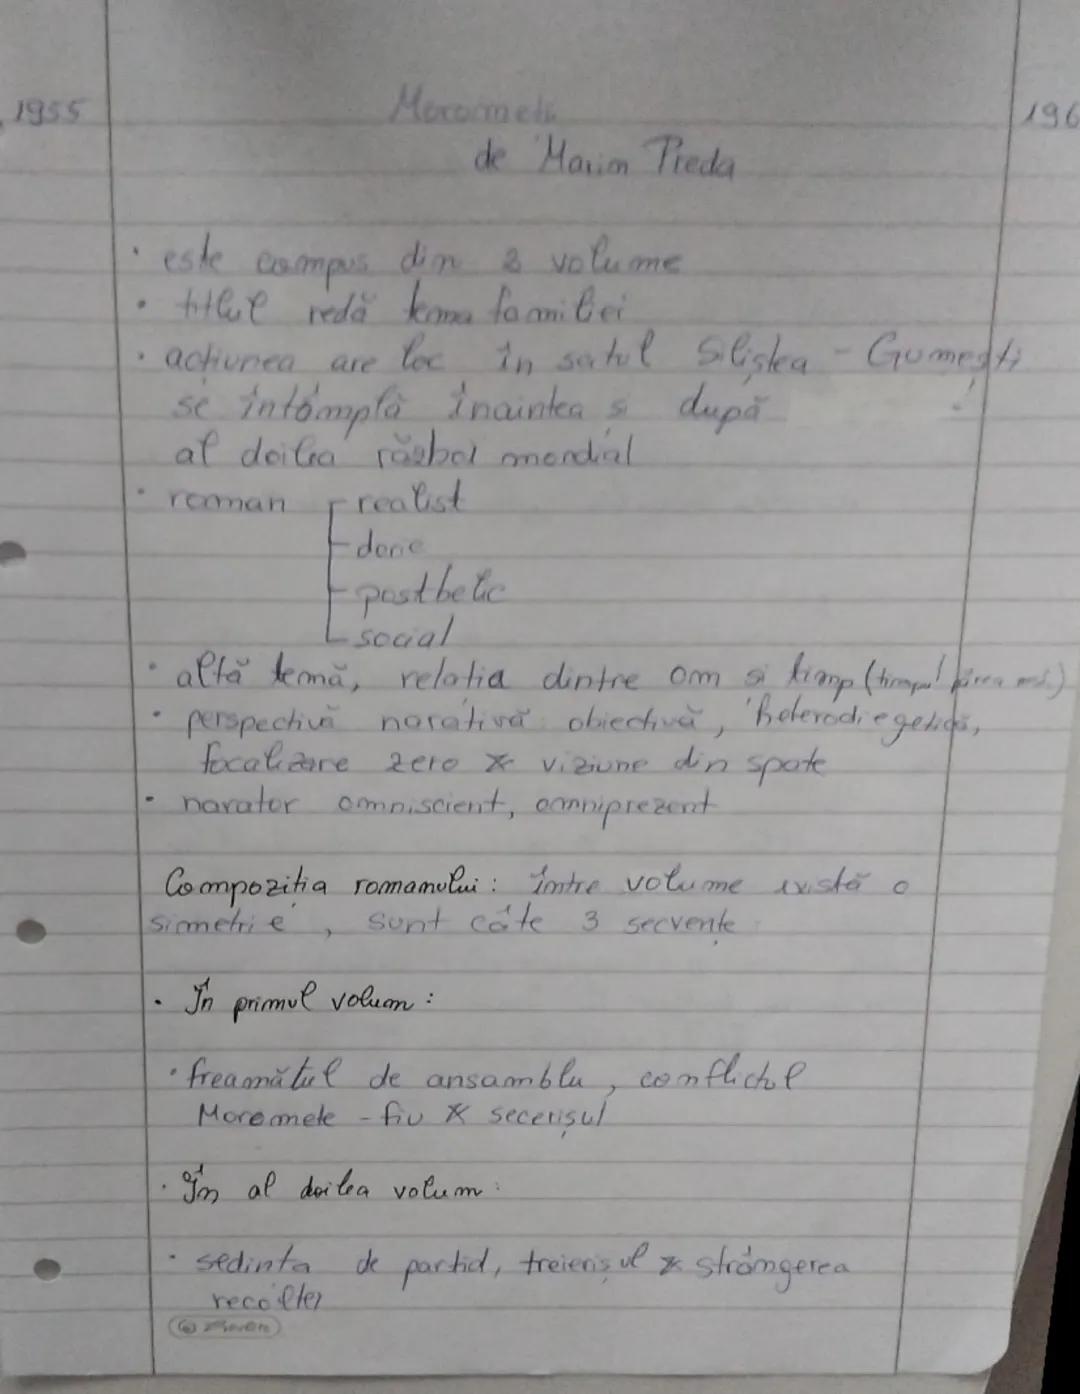 1955
Moromeții
196
de Marin Preda
• este compus din 2 volume
• titlul redă tema familiei
• acțiunea are loc în satul Siliștea - Gumești
se întâmplă înaintea si după !
al doilea război mondial
• roman realist
doric
postbelic
social
• altă temă, relatia dintre om si timp (timpul părea
• perspectivă narativă obiectivă, heterodiegetică,
focalizare zero & viziune din spate
• narator omniscient, omniprezent
Compozitia romanului: între volume există o
simetrie, sunt câte 3 secvențe
• În primul volum:
• freamătul de ansamblu, conflictul
Moromete - fiu & secerișul
• În al doilea volum:
• sedinta de partid, treierișul & strângerea
recoltei